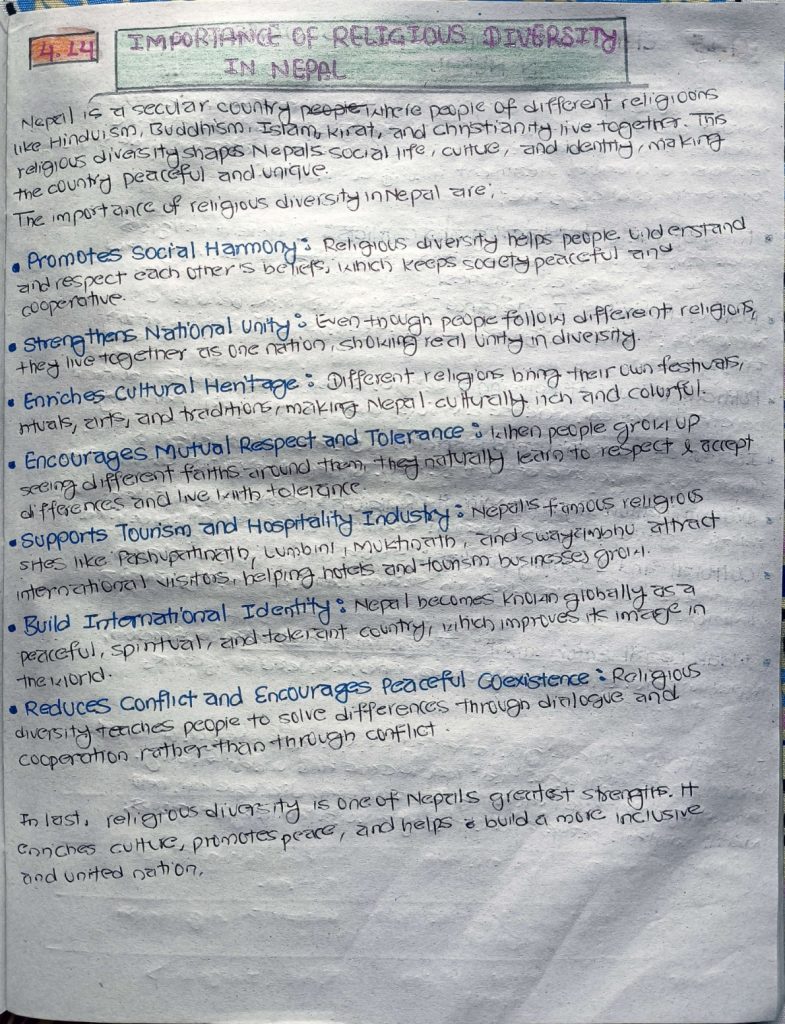 4.14
IMPORTANCE OF RELIGIOUS DIVERSITY
IN NEPAL
Nepal is a secular country people where people of different religions
like Hinduism, Buddhism, Islam, Kirat, and Christianity live together. This
religious diversity shaps Nepals social life, culture, and identity, making
the country peaceful and unique.
The importance of religious diversity in Nepal are:
• Promotes Social Harmony: Religious diversity helps people understand
and respect each other's beliefs, which keeps society peaceful and
cooperative.
• Strengthens National Unity: Even though people follow different religions,
they live together as one nation, showing real unity in diversity.
• Enriches Cultural Heritage: Different religions bring their own festivals,
rituals, arts, and traditions, making Nepal culturally rich and colorful.
• Encourages Mutual Respect and Tolerance: When people grow up
seeing different faiths around them, they naturally learn to respect & accept
differences and live with tolerance.
• Supports Tourism and Hospitality Industry: Nepal's famous religious
sites like Pashupatinath, Lumbini, Muktinath, and swayambhu attract
international visitors, helping hotels and tourism businesses grow.
• Build International Identity: Nepal becomes known globally as a
peaceful, spiritual, and tolerant country, which improves its image in
the world.
• Reduces Conflict and Encourages Peaceful Coexistence: Religious
diversity teaches people to solve differences through dialogue and
cooperation rather than through conflict.
In last, religious diversity is one of Nepals greatest strengths. It
enriches culture, promotes peace, and helps build a more inclusive
and united nation.